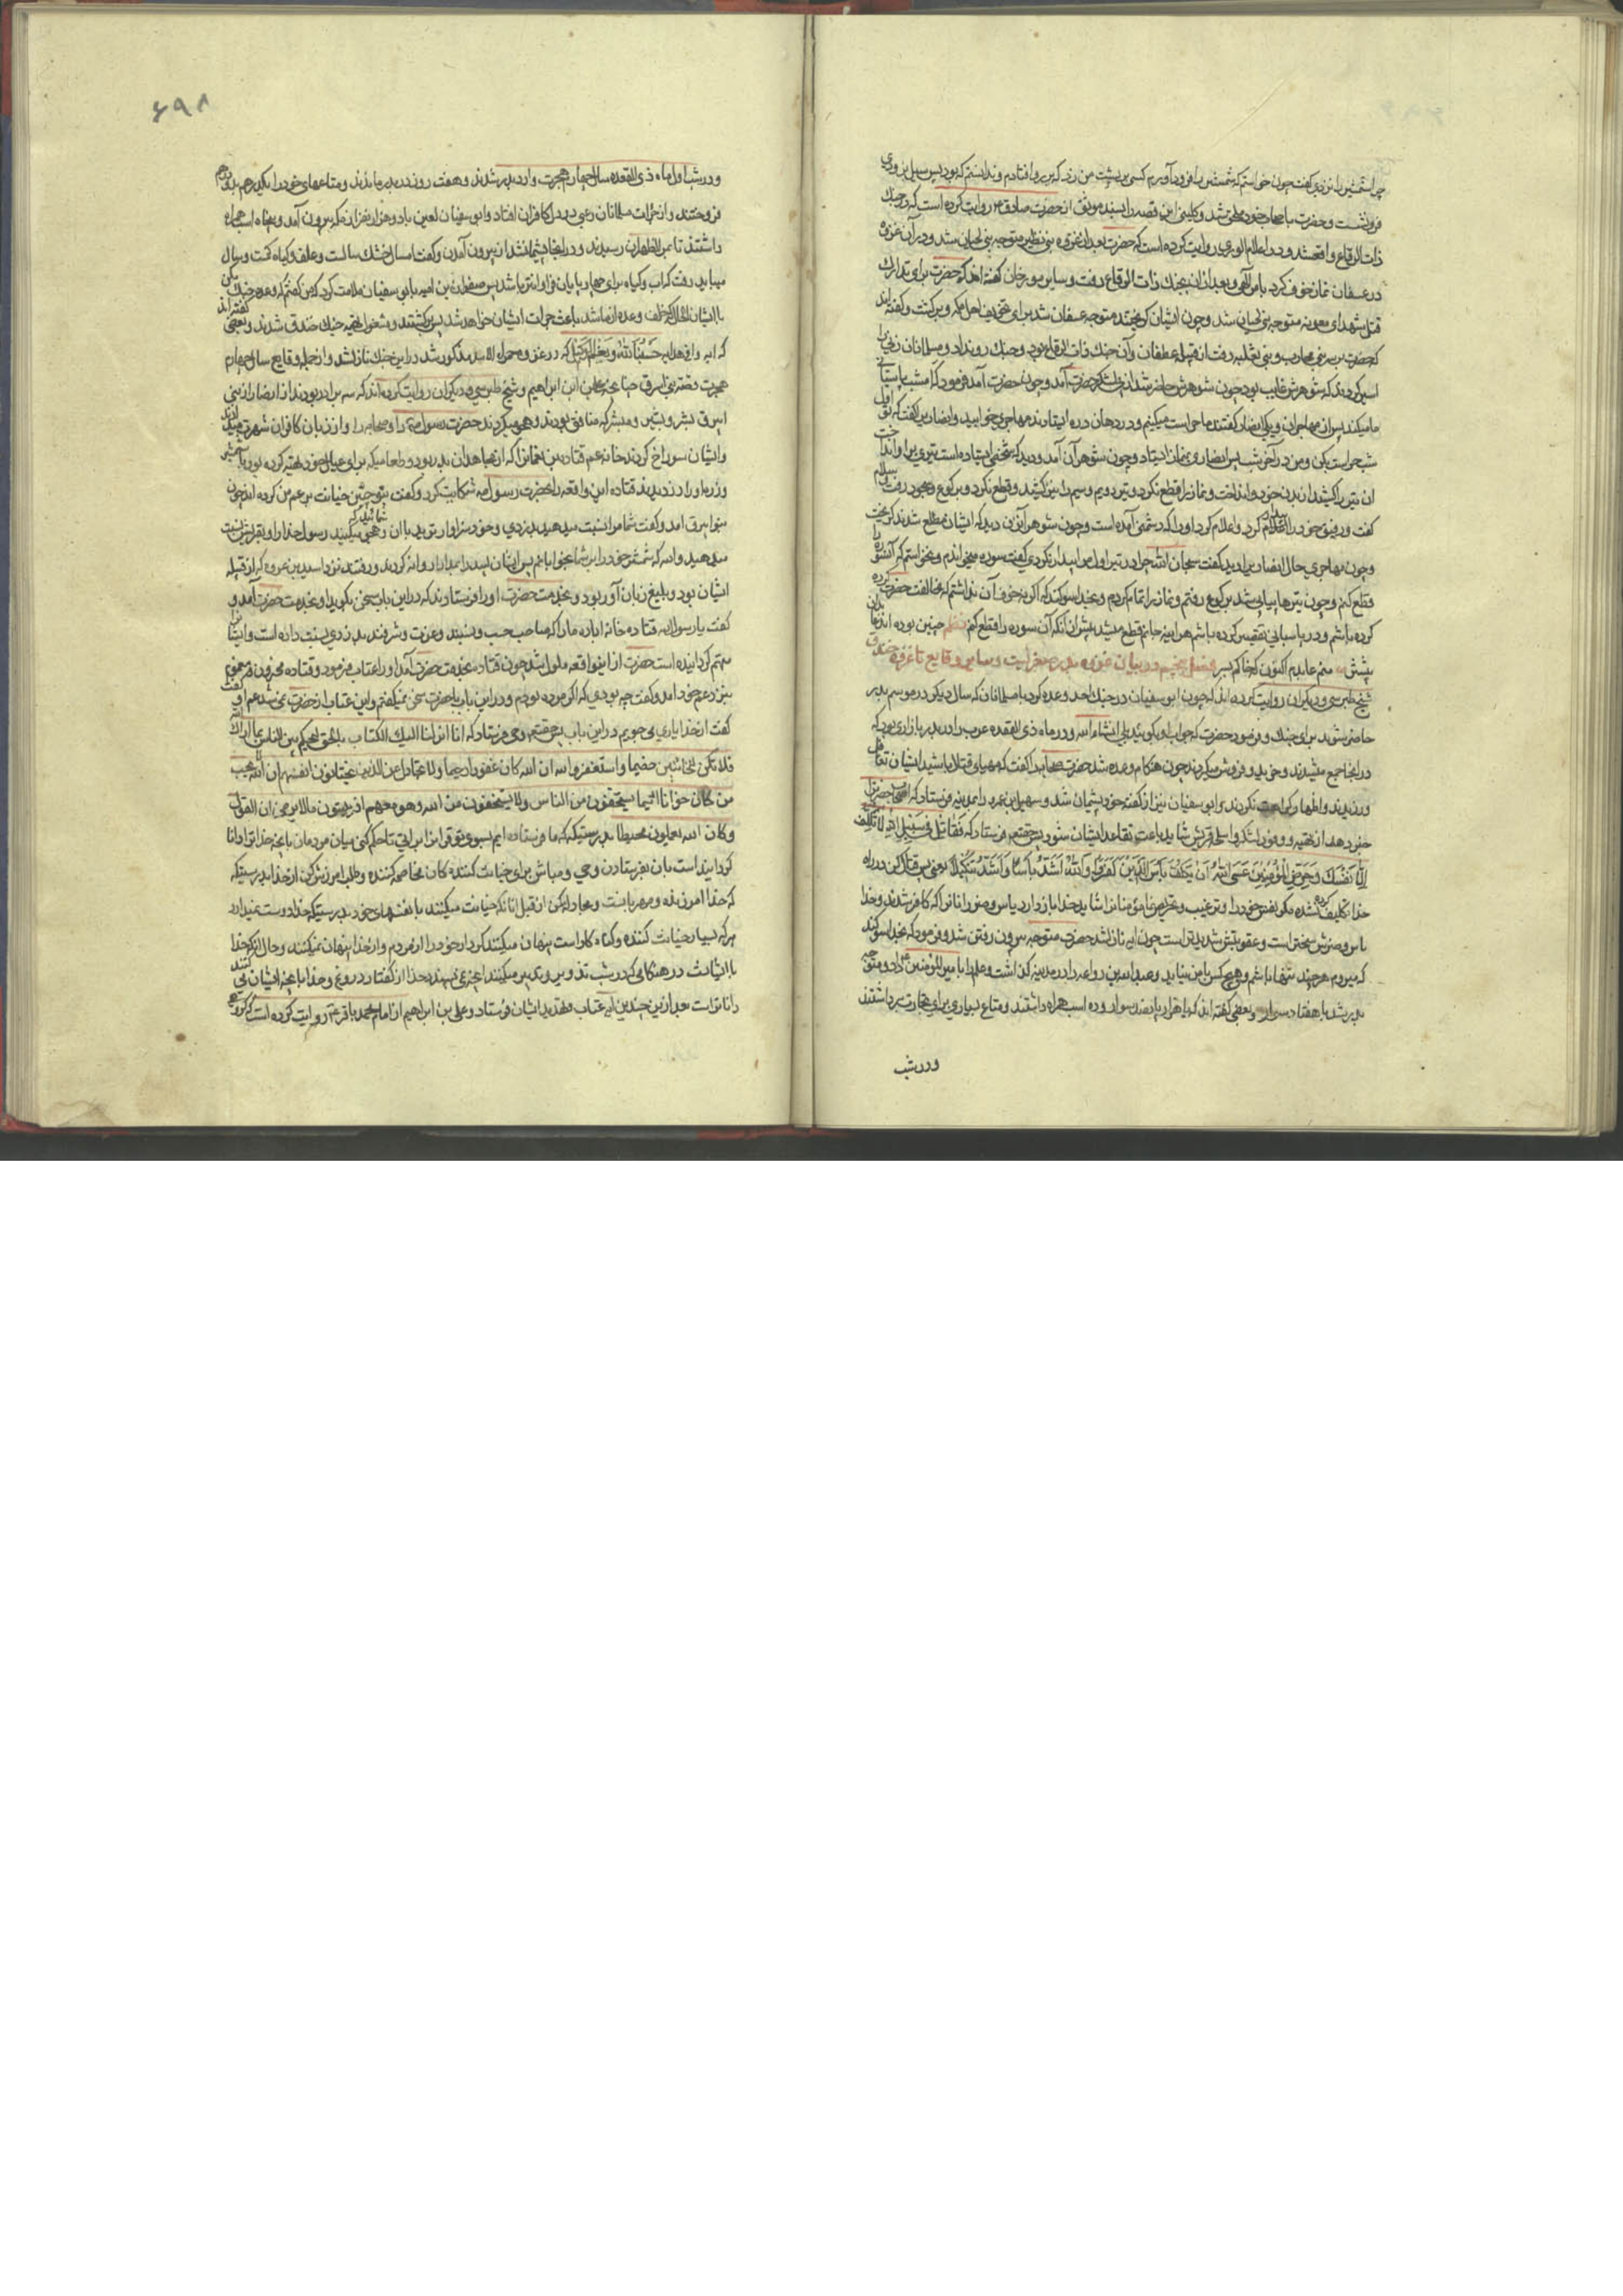 چرا شمشیر را نزدی گفت چون خواستم که شمشیر را فرود آورم کسی بر پشت من زد که بر رو افتادم و ندانستم که بود پس سیل بزودی
فرو نشست و حضرت با صحاب خود ملحق شد و کلینی این قصه را بسند موثق از حضرت صادق ع روایت کرده است که در جنك
ذات الرقاع واقع شد و در اعلام الوری روایت کرده است که حضرت بعد از غزوه بنی نظیر متوجه بنی لحیان شد و در آن غزوه
در عسفان نماز خوف کرد بامر الهی و بعد از آن بجنك ذات الرقاع رفت و سایر مورخان گفته اند که حضرت برای تدارك
قتل شهدای معونه متوجه بنی لحیان شد و چون ایشان گریختند متوجه عسفان شد برای تخویف اهل مکه و برگشت و گفته اند
که حضرت بر سر بنی محارب و بنی ثعلبه رفت از قبیله غطفان و آن جنك ذات الرقاع بود و جنك رو نداد و مسلمانان زنی را
اسیر کردند که شوهرش غایب بود چون شوهرش حاضر شد از پی لشکر حضرت آمد و چون حضرت فرود آمد فرمود که امشب پاسبانی
ما میکند پس از مهاجران و یکی از انصار گفتند ما حراست میکنیم و در دهان دره ایستادند مهاجری خوابید و انصاری گفت که تو اول
شب حراست بکن و من در آخر شب پس انصاری بنماز ایستاد و چون شوهر آن آمد و دید که شخصی ایستاده است تیری بر او انداخت
ان تیر را کشید از بدن خود و انداخت و نماز را قطع نکرد و تیر دویم و سیم را نیز کشید و قطع نکرد و برکوع و سجود رفت و سلام
گفت و رفیق خود را بیدار کرد و اعلام کرد او را که دشمنی آمده است و چون شوهر آنزن دید که ایشان مطلع شدند گریخت
و چون مهاجری حال انصار برا دید گفت سبحان الله چرا در تیر اول مرا بیدار نکردی گفت سوره میخواندم و نخواستم که آنسوره را
قطع کنم و چون تیرها پیاپی شد برکوع رفتم و نماز را تمام کردم و بخدا سوگند که اگر نه خوف آن نداشتم که مخالفت حضرت کرده
کرده باشم و در پاسبانی تقصیر کرده باشم هر اینه جانم قطع میشد پیش از انکه آن سوره را قطع کنم نظم چنین بوده اند
فصل پنجم در بیان غزوه بدر صغری است و سایر وقایع تا غزوه خندق
شیخ طبرسی و دیگران روایت کرده اند که چون ابو سفیان در جنك احد وعده کرد با مسلمانان که سال دیگر در موسم بدر
حاضر شوید برای جنك و فرمود حضرت که جواب او بگوئید بلی انشاء الله و در ماه ذی القعده عرب را در بدر بازاری بود که
در انجا جمع میشدند و خرید و فروش میکردند چون هنگام وعده شد حضرت صحابه را گفت که مهیای قتال باشید ایشان تثاقل
ورزیدند و اظهار کراهت نکردند و ابو سفیان نیز از گفته خود پشیمان شد و سهیل بن عمرو را بمدینه فرستاد که اصحاب حضرت را
خبر دهد از تهیه و وفور لشکر و اسلحه قریش شاید باعث تقاعد ایشان شود پس حقتعم فرستاد که فَقَاتِلْ فِی سَبِیلِ اللهِ لَا تُکَلَّفُ
اِلَّا نَفْسَكَ وَ حَرِّضِ الْمُؤْمِنِینَ عَسَی اللهُ اَنْ یَکُفَّ بَأْسَ الَّذِینَ کَفَرُوا وَ اللهُ اَشَدُّ بَأْسًا وَ اَشَدُّ تَنْکِیلًا یعنی پس قتال کن در راه
خدا تکلیف کرده نشده مگر نفس خود را و ترغیب و تحریص نما مؤمنانرا شاید خدا باز دارد باس و ضرر انانرا که کافر شدند و خدا
باس و ضررش سختر است و عقوبتش شدیدتر است چون ایه نازل شد حضرت متوجه بیرون رفتن شد و فرمود که بخدا سوگند
که میروم هر چند تنها باشم و هیچکس با من نیاید و عبد الله بن رواحه را در مدینه گذاشت و علم را با میر المؤمنین ع داد و متوجه
بدر شد با هفتاد سوار و بعضی گفته اند که با هزار و پانصد سوار و ده اسب همراه داشتند و متاع بسیاری برای تجارت برداشتند
ودر شب
۶۹۸
ودر شب اول ماه ذی القعده سال چهارم هجرت وارد بدر شدند و هفت روز در بدر ماندند و متاعهای خود را یکدرهم بدو درهم
فروختند و از جرات مسلمانان رعبی در دل کافران افتاد و ابو سفیان لعین با دو هزار نفر از مکه بیرون آمد و پنجاه اسب همراه
داشتند تا بمر الظهران رسیدند و در انجا پشیمان شد از بیرون آمدن و گفت امسال خشك سالست و علف و گیاه کمست و سال
میباید رفت که اب و گیاه برای چهار پایان فراوانتر باشد پس صفوان بن امیه با بو سفیان ملامت کرد که من گفتم که وعده جنك مکن
با ایشان الحال که خلف وعده از ما شد باعث جرات ایشان خواهد شد پس برگشتند و مشغول تهیه جنك خندق شدند و بعضی گفته اند
که ایه وافی هدایه حَسْبُنَا اللهُ وَ نِعْمَ الْوَکِیلُ که در غزوه حمراء الاسد مذکور شد در این جنك نازل شد و از جمله وقایع سال چهارم
هجرت قصه بنی ابیرق است چنانچه علی ابن ابراهیم و شیخ طبرسی و دیگران روایت کرده اند که سه برادر بودند از انصار از بنی
ابیرق بشر و بشیر و مبشر که منافق بودند و هجو میکردند حضرت رسول ص را و صحابه را و از زبان کافران شهرت میدادند
و ایشان سوراخ کردند خانه عم قتاده بن نعمانرا که از مجاهدان بدر بود و طعامیکه برای عیال خود تهیه کرده بود با شمشیر
و زره او را دزدیدند قتاده این واقعه را بحضرت رسول ص شکایت کرد و گفت یتوجنین خیانت بر عم من کرده اند چون
بنو ابیرق امد و گفت شما مرا نسبت میدهید بدزدی و خود سزاوارترید با ان شمائید که هجو میکنید رسول خدا را و بقریش نسبت
میدهید والله که شمشیر خود را بر شما بخوابانم پس ایشان لبید را بمدارا روانه کردند و رفتند نزد اسید بن عروه که از قبیله
ایشان بود و بلیغ زبان آور بود و بخدمت حضرت او را فرستادند که در این باب سخن بگوید او بخدمت حضرت آمد و
گفت یا رسول الله قتاده خانه اباده ما را که صاحب حسب و نسبند و عزت و شرفند بدزدی نسبت داده است و ایشانرا
متهم گردانیده است حضرت از اینواقعه ملول شد چون قتاده بخدمت حضرت آمد او را عتاب فرمود و قتاده محزون و مغموم
بنزد عم خود امد و گفت چه بودی که اگر مرده بودم و در این باب با حضرت سخن نمیگفتم و این عتاب از حضرت بمن نمیرسد عم او گفت
گفت از خدا یاری می جویم در این باب پس حقتعم وحی فرستاد که انا انزلنا الیك الکتاب بالحق لتحکم بین الناس بما اراك الله
ولا تکن للخائنین خصیما واستغفر الله ان الله کان غفورا رحیما ولا تجادل عن الذین یختانون انفسهم ان الله لا یحب
من کان خوانا اثیما یستخفون من الناس ولا یستخفون من الله وهو معهم اذ یبیتون ما لا یرضی من القول
وکان الله بما یعملون محیطا بدرستیکه ما فرستاده ایم بسوی تو قرانرا براستی تا حکم کنی میان مردمان بانچه خدا ترا دانا
گردانیده است بان بفرستادن وحی و مباش برای خیانت کنندگان مخاصمه کننده و طلب امرزش کن از خدا بدرستیکه
که خدا امرزنده و مهربانست و مجادله مکن از قبل انانکه خیانت میکنند با نفسهای خود بدرستیکه خدا دوست نمیدارد
هر که بسیار خیانت کننده و گناه کار است پنهان میکنند کردار خود را از مردم و از خدا پنهان نمیکنند و حال آنکه خدا
با ایشانست در هنگامی که در شب تدویر و تدبیر میکنند انچه نمی پسندد خدا از گفتار دروغ و خدا بانچه ایشان می کنند
داناتر است بعد از ین چندین ایه عتاب و تهدید ایشان فرستاد و علی بن ابراهیم از امام محمد باقر ع روایت کرده است که گروهی